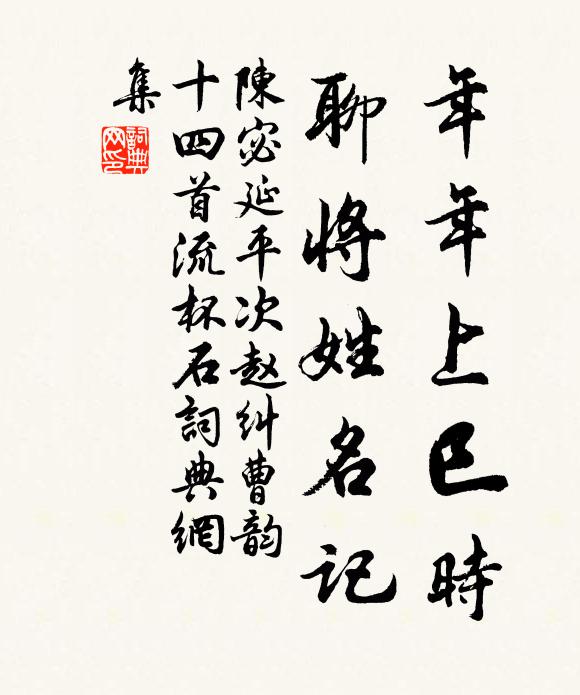 年年上巳時
聊將姓名記
陳宓延平次赵糾曹韵
十四首流杯石詞典網
集
詞典
网印